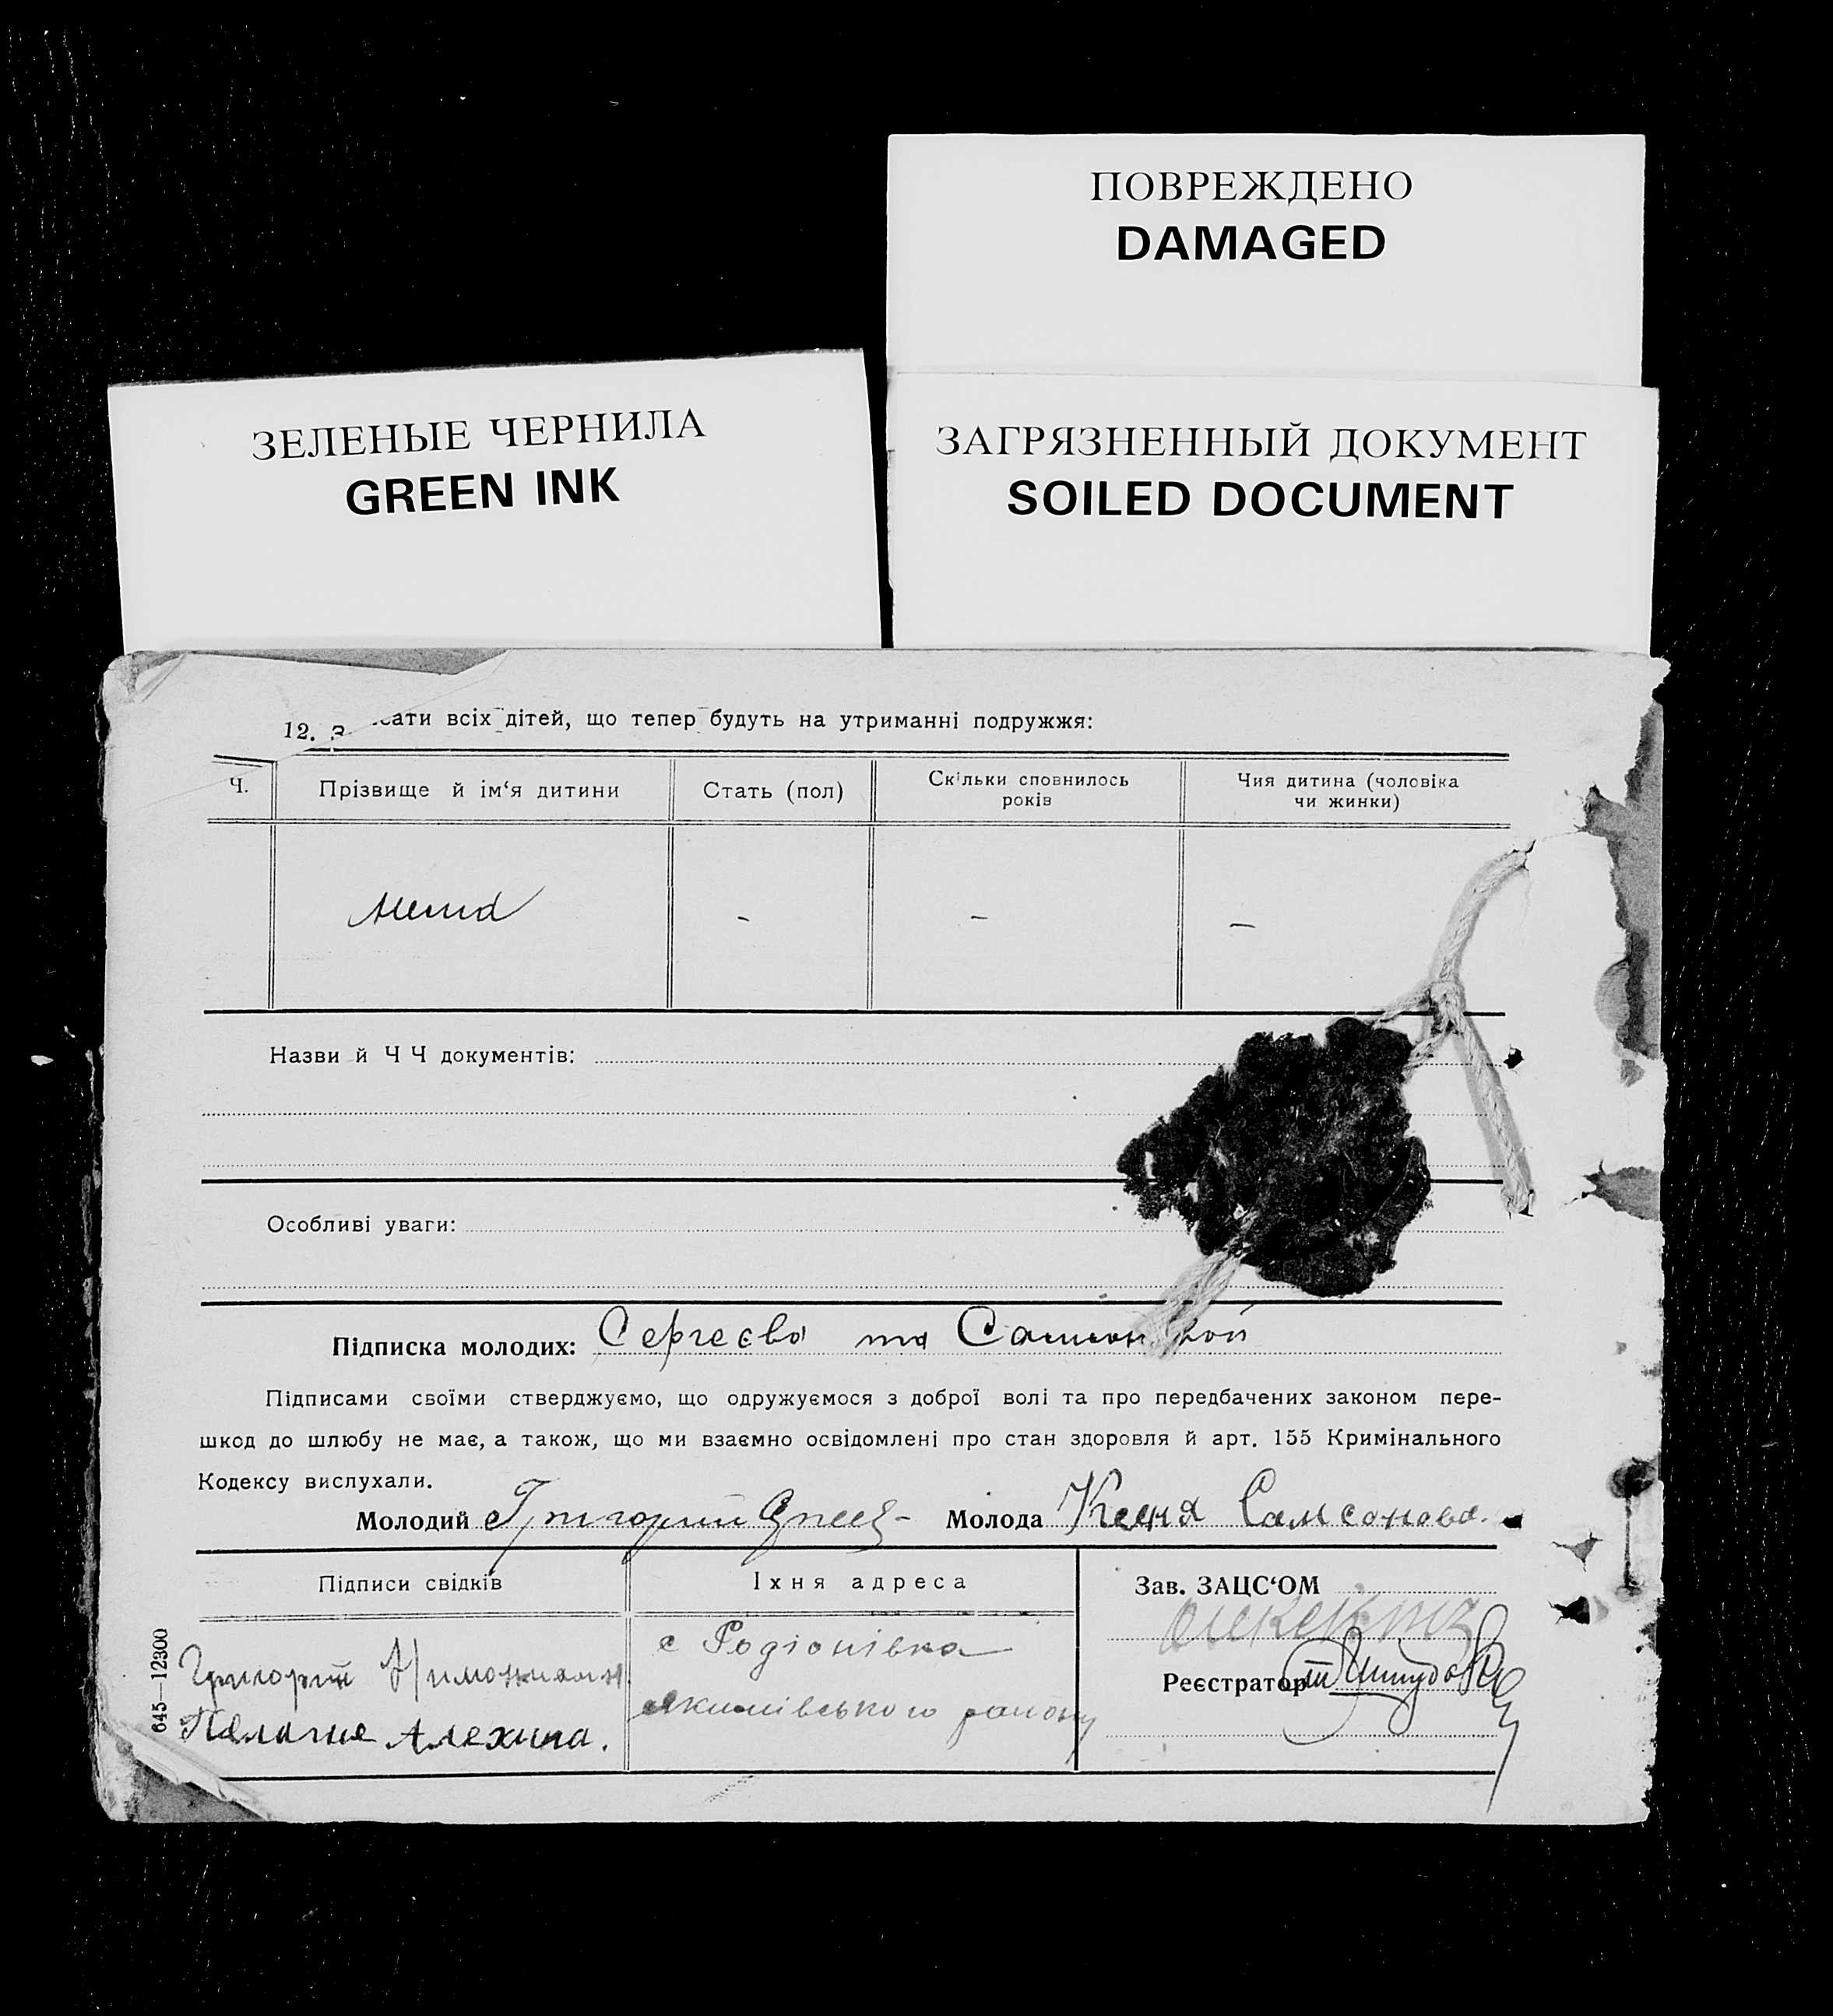 ПОВРЕЖДЕНО
DAMAGED
ЗЕЛЕНЫЕ ЧЕРНИЛА
GREEN INK
ЗАГРЯЗНЕННЫЙ ДОКУМЕНТ
SOILED DOCUMENT
12. З сати всіх дітей, що тепер будуть на утриманні подружжя:
Ч. Прізвище й ім‘я дитини Стать (пол) Скільки сповнилось років Чия дитина (чоловіка чи жинки)
– – –
Назви й Ч Ч документів:
Особливі уваги:
Підписка молодих: Сергеєва та
Підписами своїми стверджуємо, що одружуємося з доброї волі та про передбачених законом пере-
шкод до шлюбу не має, а також, що ми взаємно освідомлені про стан здоровля й арт. 155 Кримінального
Кодексу вислухали.
Молодий Григорий Молода Самсонова.
Підписи свідків Їхня адреса Зав. ЗАЦС‘ОМ
с Родіонівка
Григорий
Реєстратор
Якимівського району
Пелагия Алехина.
645—12300